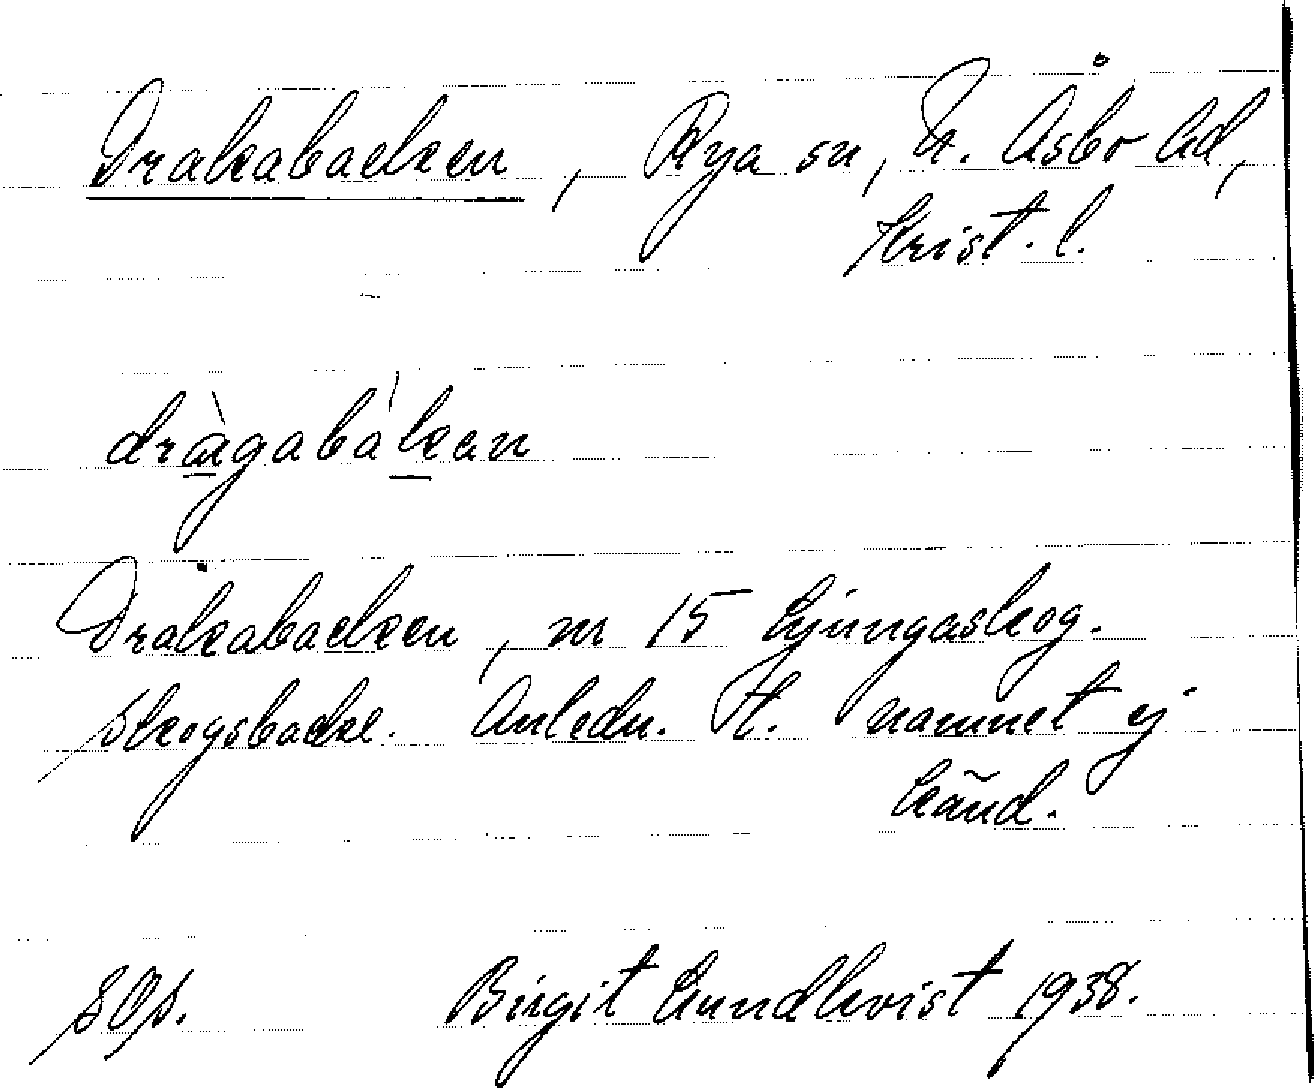 Drakabacken, Rya sn, N. Åsbo hd,
Krist. l.
dràgabàkan
Drakabacken, nr 15 Ljungaskog.
Skogsbacke. Anledn. t. namnet ej
känd.
SOp. Birgit Lundkvist 1938.